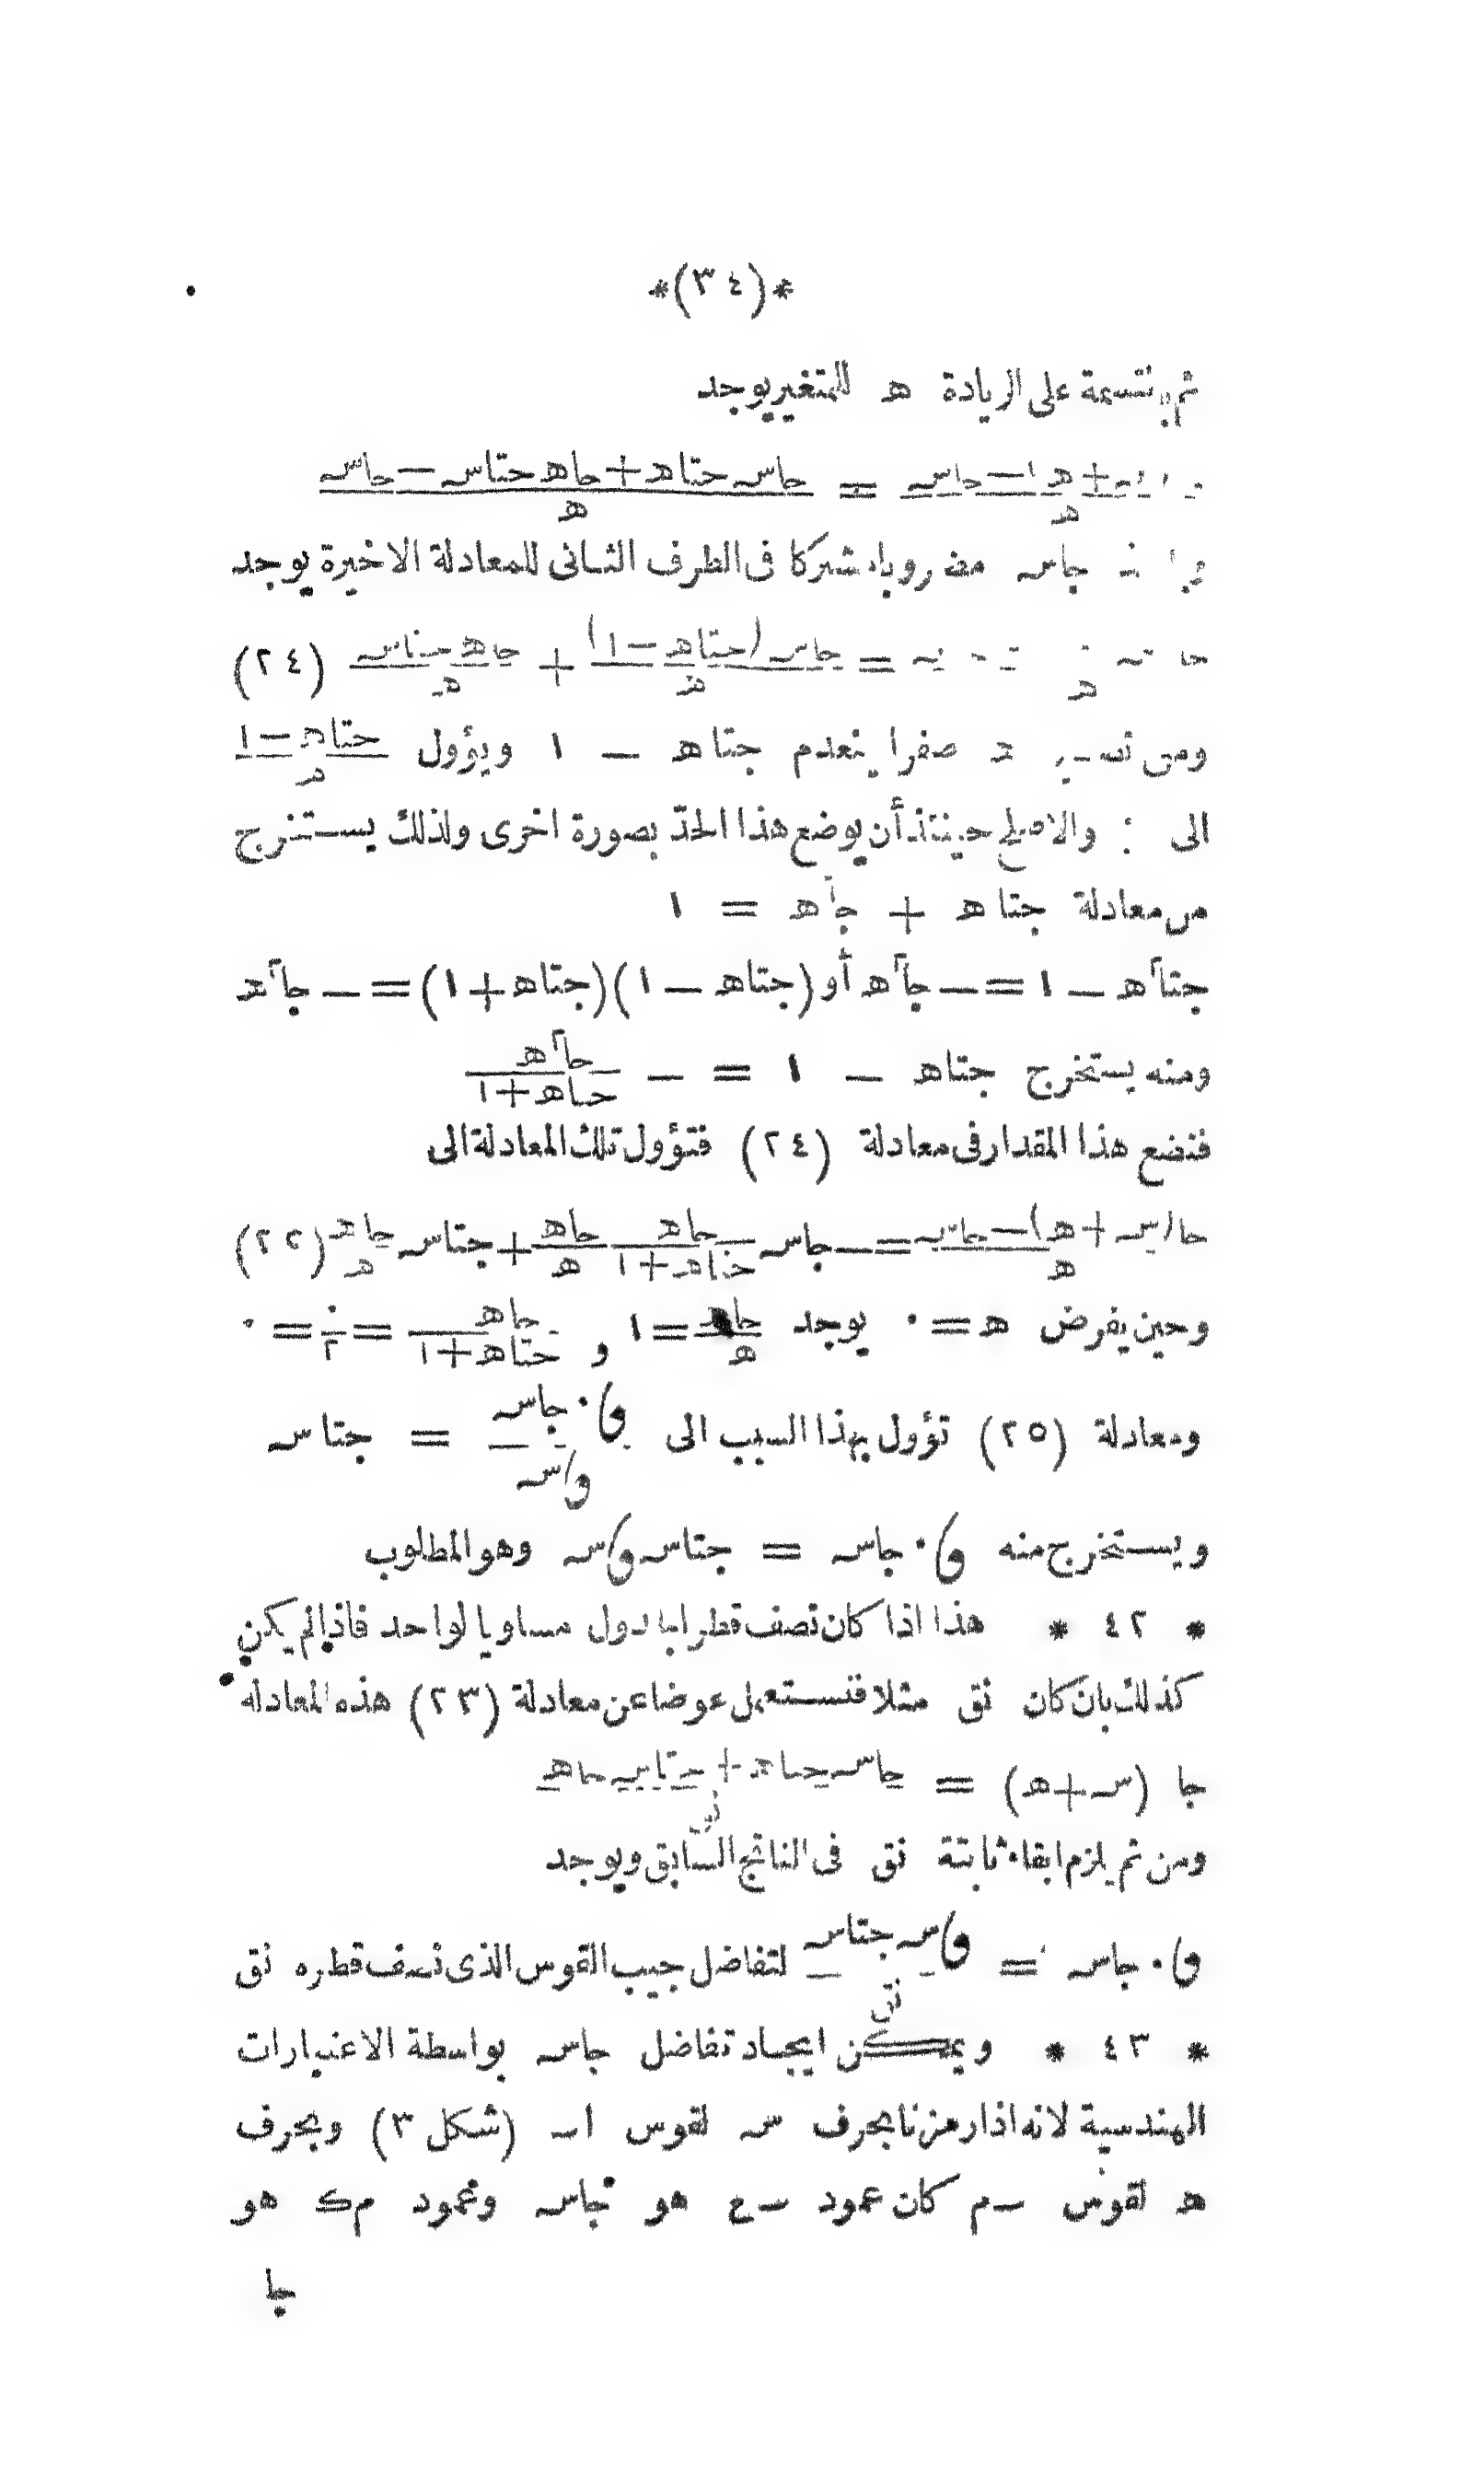 *(٣٤)*
ثم بقسمة على الزيادة ه للمتغير يوجد
(جا(س+ه)−جاس)/ه = (جاس جتاه+جاه جتاس−جاس)/ه
جاس مضروبا مشتركا فى الطرف الثانى للمعادلة الاخيرة يوجد
= جاس(جتاه−١)/ه + جاه جتاس/ه (٢٤)
ومتى ه صفرا ينعدم جتاه − ١ ويؤول (جتاه−١)/ه
الى والاصلح حينئذ أن يوضع هذا الحدّ بصورة اخرى ولذلك يستخرج
من معادلة جتا ه + جا٢ه = ١
جتا٢ه − ١ = − جا٢ه أو (جتاه − ١)(جتاه+١) = − جا٢ه
ومنه يستخرج جتاه − ١ = − جا٢ه/(جتاه+١)
فنضع هذا المقدار فى معادلة (٢٤) فتؤول تلك المعادلة الى
(جا(س+ه)−جاس)/ه = −جاس جاه/(جتاه+١) جاه/ه + جتاس جاه/ه (٢٢)
وحين يفرض ه = ٠ يوجد جاه/ه = ١ و جاه/(جتاه+١) = ٠/٢ = ٠
ومعادلة (٢٥) تؤول بهذا السبب الى ڡا٠جاس/ڡاس = جتاس
ويستخرج منه ڡا٠جاس = جتاس ڡاس وهو المطلوب
* ٤٢ * هذا اذا كان نصف قطر الجدول مساويا لواحد فاذا لم يكن
كذلك بان كان نق مثلا فنستعمل عوضا عن معادلة (٢٣) هذه المعادلة
جا (س+ه) = (جاس جتاه + جتاس جاه)/نق
ومن ثم يلزم ابقاء ثابتة نق فى الناتج السابق ويوجد
ڡا٠جاس = ڡاس جتاس/نق لتفاضل جيب القوس الذى نصف قطره نق
* ٤٣ * ويمكن ايجاد تفاضل جاس بواسطة الاعتبارات
الهندسية لانه اذا رمزنا بحرف س لقوس اب (شكل ٣) وبحرف
ه لقوس ب م كان عمود ب ع هو جاس وعمود م ك هو
جا